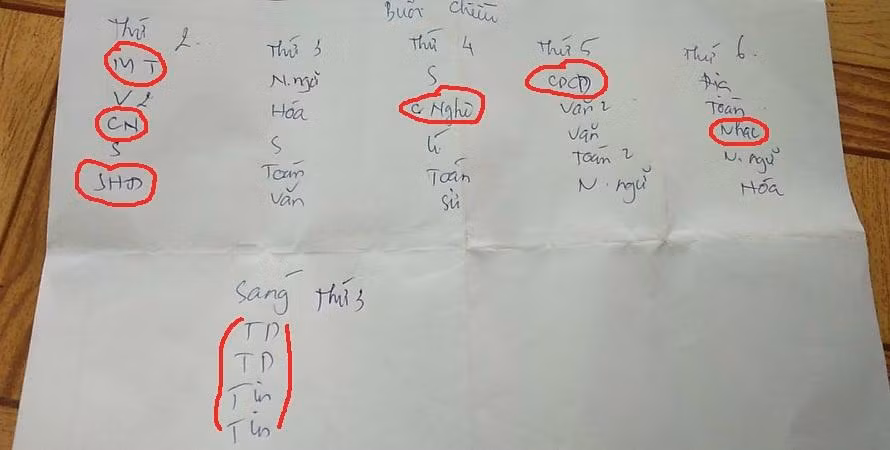 Buổi chiều
Thứ 2 Thứ 3 Thứ 4 Thứ 5 Thứ 6
MT N.ngữ S GDCD Địa
V2 Hóa C Nghệ Văn 2 Toán
CN S Lí Văn Nhạc
S Toán Toán Toán 2 N.ngữ
SHTT Văn Sử N.ngữ Hóa
Sáng Thứ 3
TD
TD
Tin
Tin